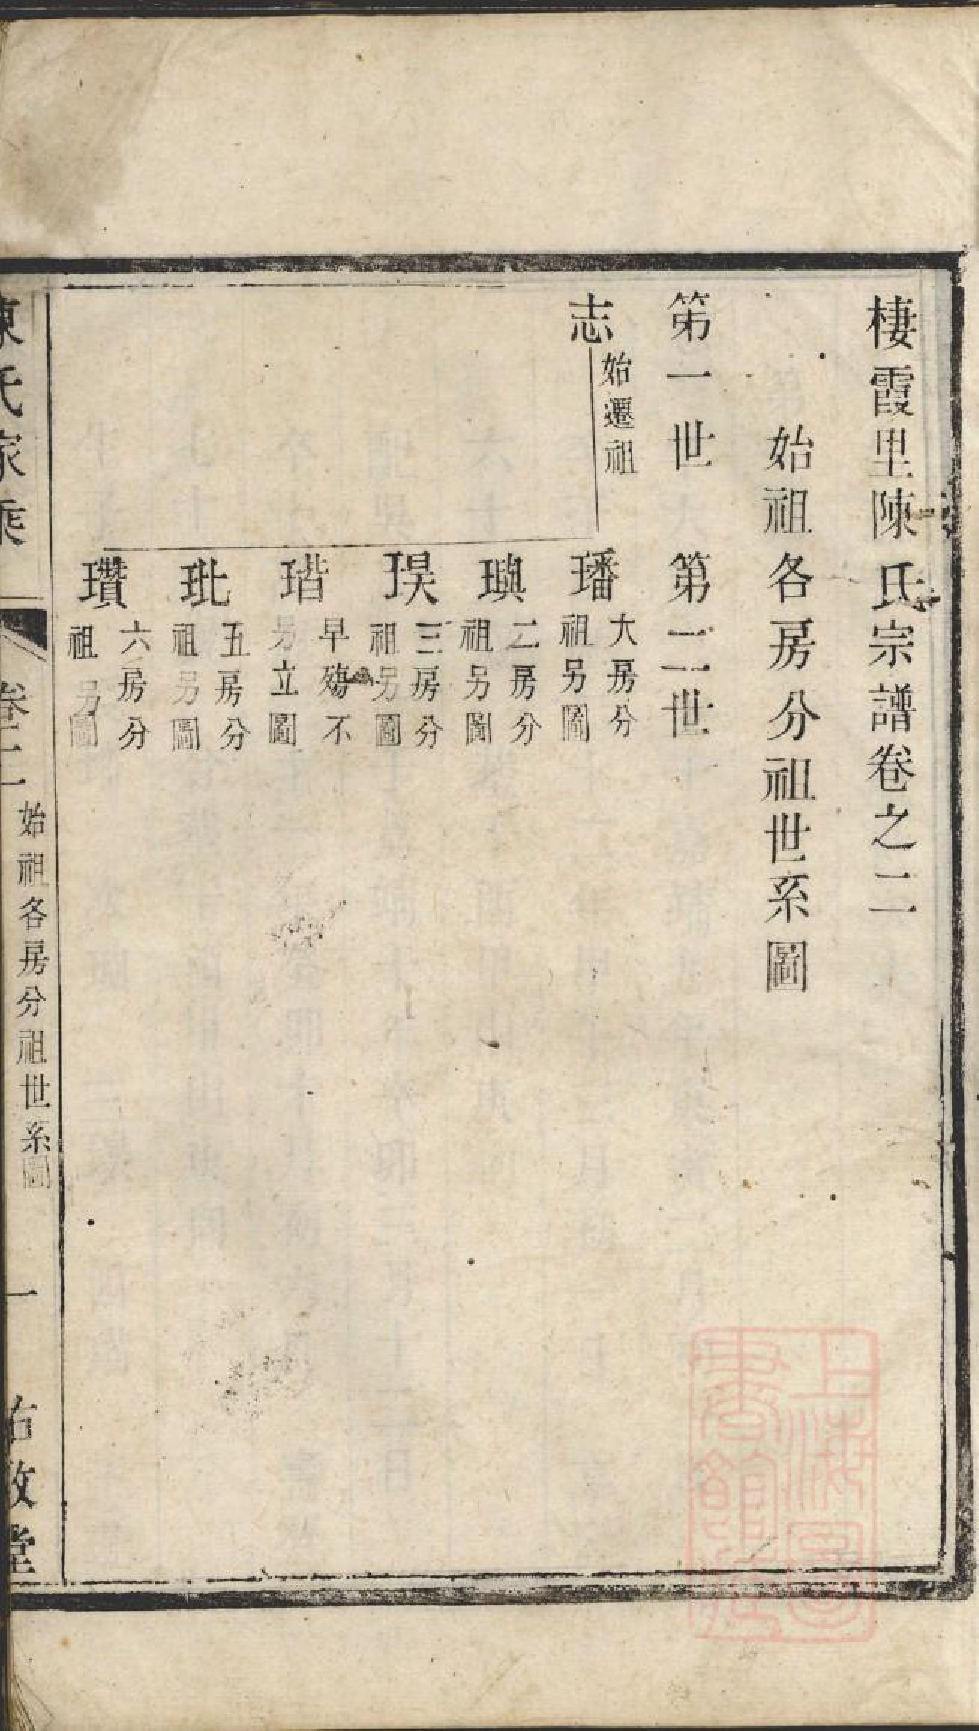 棲霞里陳氏宗譜卷之二
始祖各房分祖世系圖
第一世 第二世
志 始遷祖
璠 大房分祖另圖
璵 二房分祖另圖
㻍 三房分祖另圖
瑎 早殤不另立圖
玭 五房分祖另圖
瓚 六房分祖另圖
陳氏家乘 卷二 始祖各房分祖世系圖 一 佑啟堂
上海圖書館藏